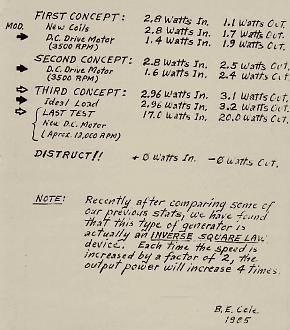 FIRST CONCEPT: 2.8 Watts In. 1.1 Watts Out.
MOD. New Coils 2.8 Watts In. 1.7 Watts Out.
D.C. Drive Motor 1.4 Watts In. 1.9 Watts Out.
(3500 RPM)
SECOND CONCEPT: 2.8 Watts In. 2.5 Watts Out.
D.C. Drive Motor 1.6 Watts In. 2.4 Watts Out.
(3500 RPM)
THIRD CONCEPT: 2.96 Watts In. 3.1 Watts Out.
Ideal Load 2.96 Watts In. 3.2 Watts Out.
LAST TEST 17.0 Watts In. 20.0 Watts Out.
New D.C. Motor
(Aprox. 12,000 RPM)
DISTRUCT!! +0 Watts In. -0 Watts Out.
NOTE: Recently after comparing some of
our previous stats, we have found
that this type of generator is
actually an INVERSE SQUARE LAW
device. Each time the speed is
increased by a factor of 2, the
output power will increase 4 times.
B.E. Cole
1985